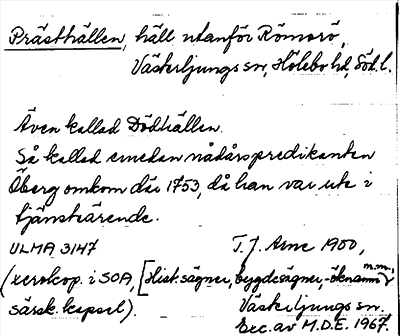 Prästhällen, häll utanför Römorö,
Västerljungs sn, Hölebo hd, Söd l.
Även kallad Dödhällen.
Så kallad emedan nådårspredikanten
Öberg omkom där 1753, då han var ute i
tjänstärende.
ULMA 3147 T. J. Arne 1900,
(xerokop. i SOA, [Hist. sägner, bygdesägner, öknamn m.m.]
särsk. kapsel). Västerljungs sn.
Exc. av M.D.E. 1967.